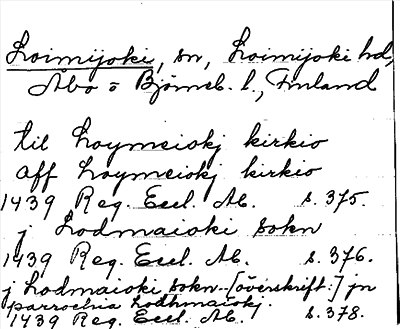 Loimijoki, sn, Loimijoki hd,
Åbo o Björneb. l., Finland
til Loymeiokj kirkio
aff Loymeiokj kirkio
1439 Reg. Eccl. Ab. s. 375.
j Lodmaioki sokn
1439 Reg. Eccl. Ab. s. 376.
j Lodmaioki sokn [överskrift:] jn
parrochia Lodhmaiokj.
1439 Reg. Eccl. Ab. s. 378.